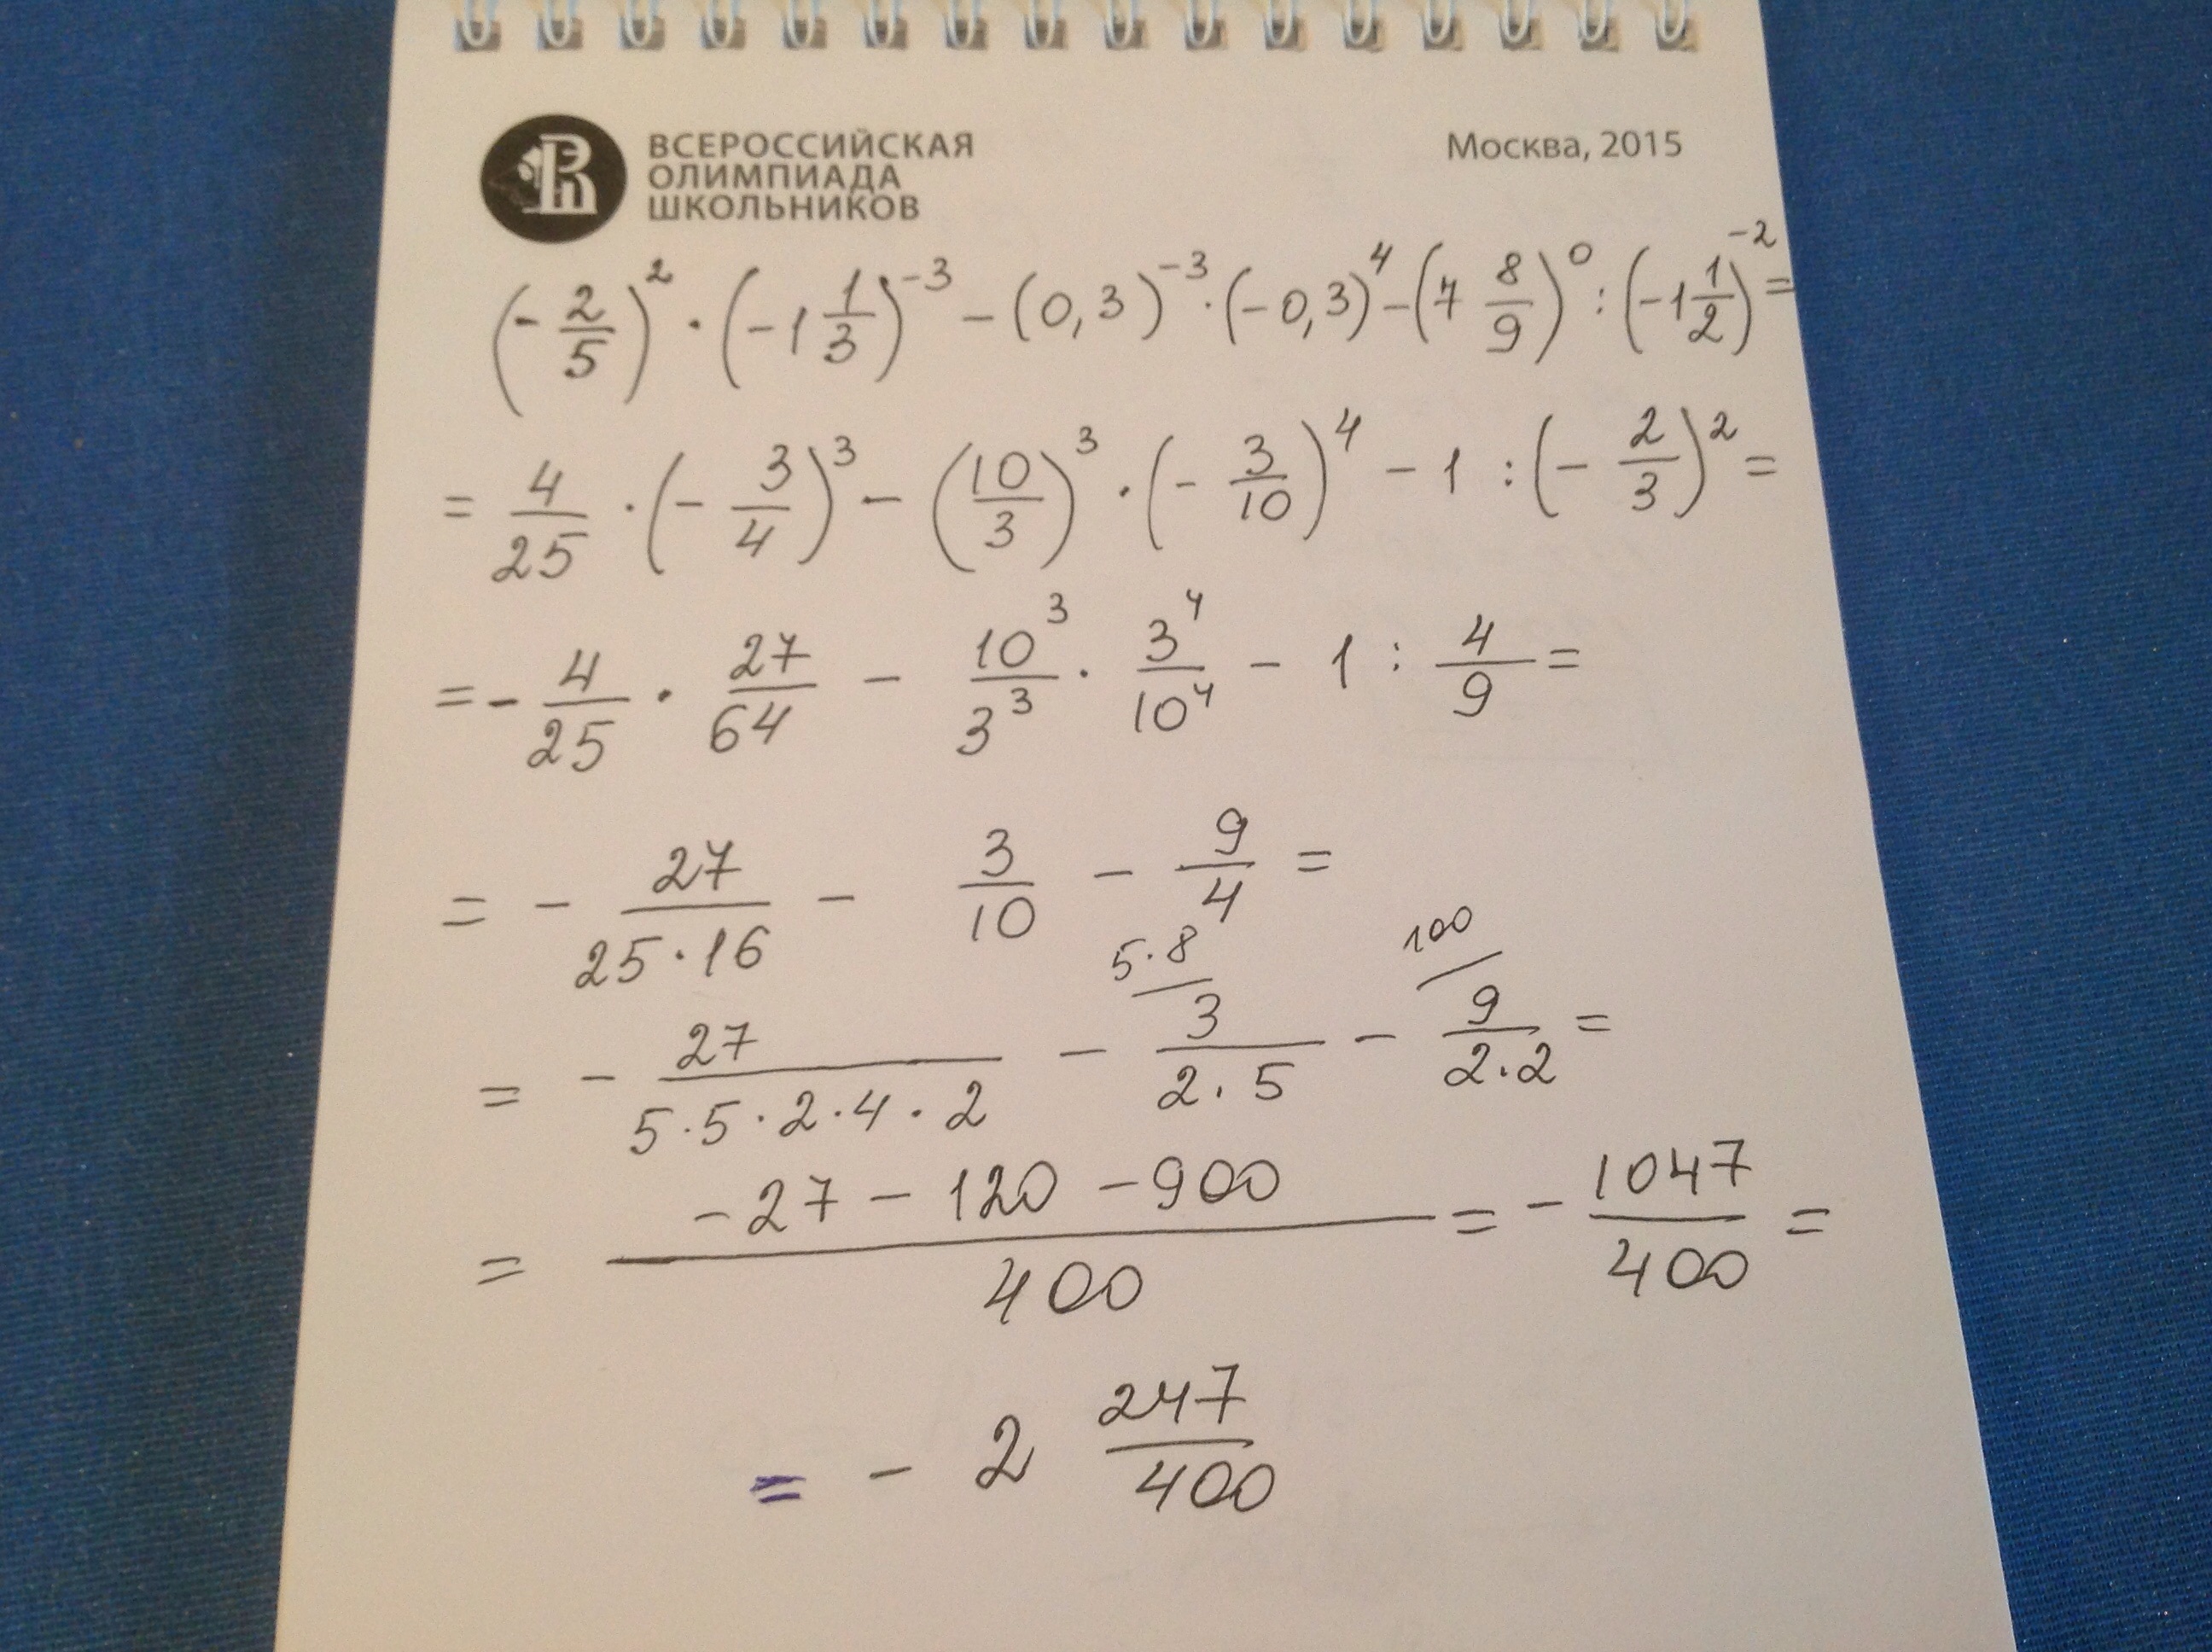 ВСЕРОССИЙСКАЯ
ОЛИМПИАДА
ШКОЛЬНИКОВ
Москва, 2015
(-2/5)^2 · (-1 1/3)^-3 - (0,3)^-3 · (-0,3)^4 - (7 8/9)^0 : (-1 1/2)^-2 =
= 4/25 · (-3/4)^3 - (10/3)^3 · (-3/10)^4 - 1 : (-2/3)^2 =
= - 4/25 · 27/64 - 10^3/3^3 · 3^4/10^4 - 1 : 4/9 =
= - 27/(25·16) - 3/10 - 9/4 =
5·8 100
= - 27/(5·5·2·4·2) - 3/(2·5) - 9/(2·2) =
= (-27 - 120 - 900)/400 = - 1047/400 =
= - 2 247/400